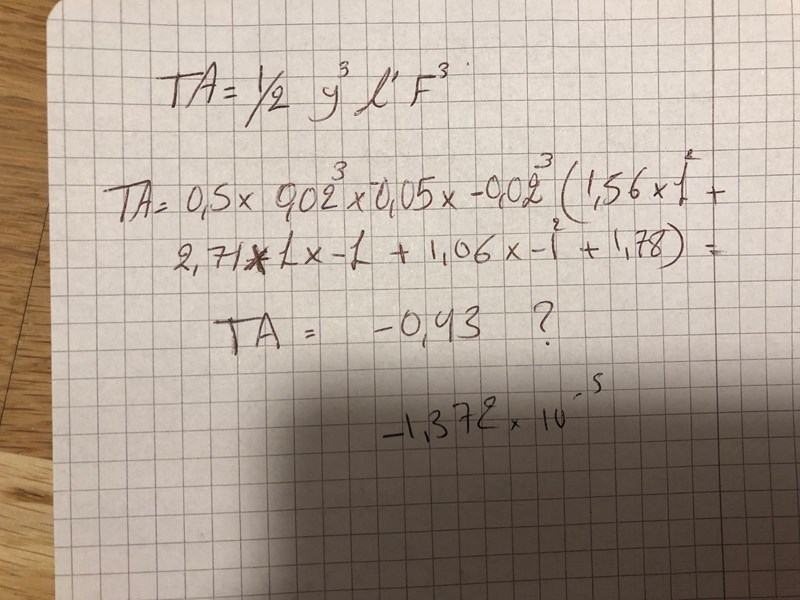 TA = 1/2 y³ l' F³
TA = 0,5 x 0,02³ x 0,05 x -0,02³ (1,56 x 1² +
2,71 x 1 x -1 + 1,06 x -1² + 1,78) =
TA = -0,43 ?
-1,372 x 10⁻⁵